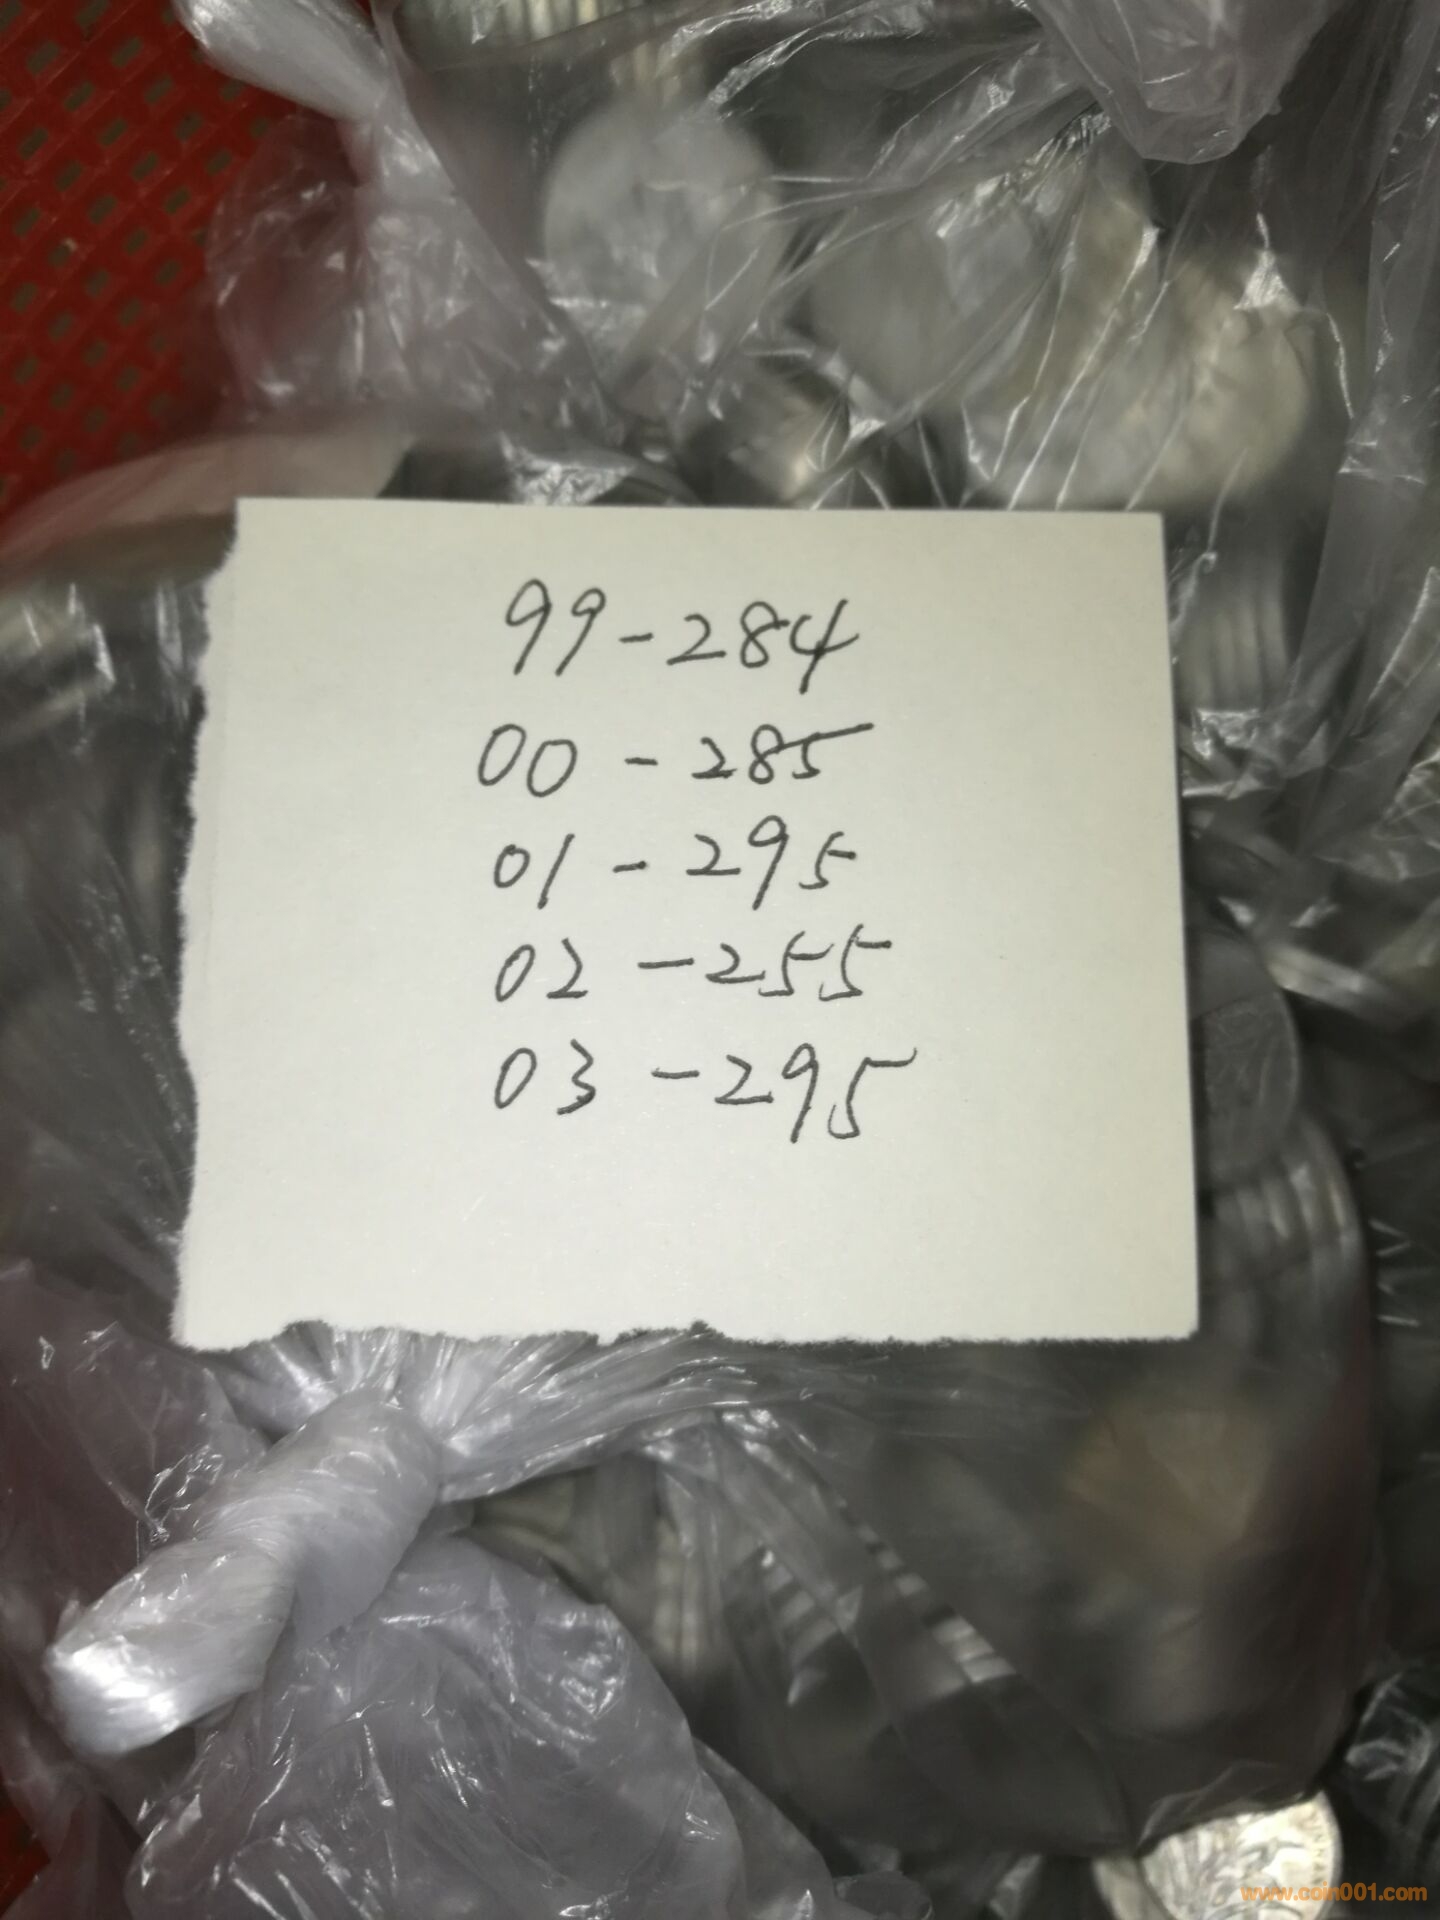 99-284
00-285
01-295
02-255
03-295
www.coin001.com